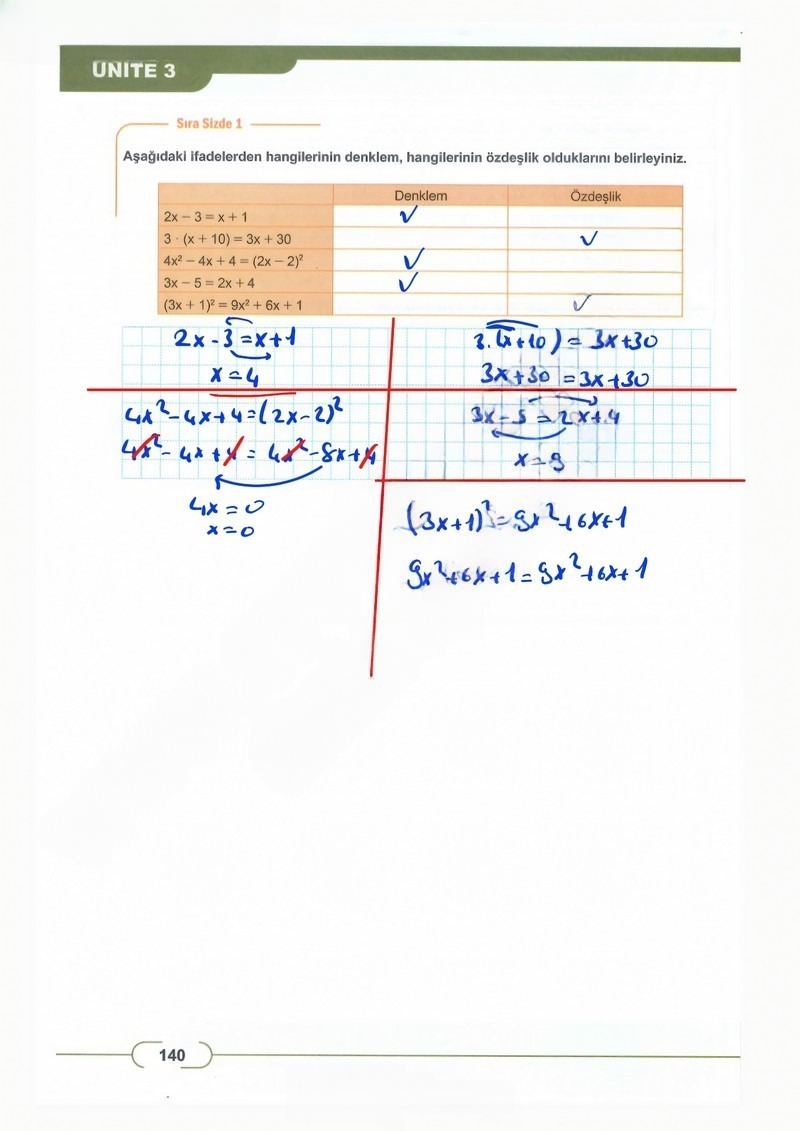 ÜNİTE 3
Sıra Sizde 1
Aşağıdaki ifadelerden hangilerinin denklem, hangilerinin özdeşlik olduklarını belirleyiniz.
Denklem Özdeşlik
2x − 3 = x + 1 ✓
3 · (x + 10) = 3x + 30 ✓
4x² − 4x + 4 = (2x − 2)² ✓
3x − 5 = 2x + 4 ✓
(3x + 1)² = 9x² + 6x + 1 ✓
2x - 3 = x + 1
x = 4
3.(x+10) = 3x+30
3x+30 = 3x+30
4x² - 4x + 4 = (2x - 2)²
4x² - 4x + 4 = 4x² - 8x + 4
4x = 0
x = 0
3x - 5 = 2x + 4
x = 9
(3x+1)² = 9x² + 6x + 1
9x² + 6x + 1 = 9x² + 6x + 1
140